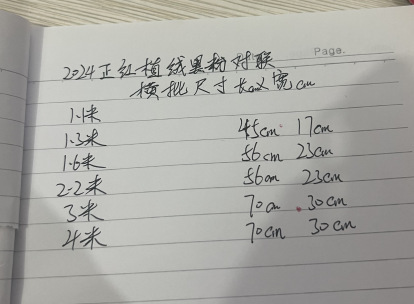 Page.
2024正红植绒黑粉对联
横批尺寸长cm×宽cm
1.1米
1.3米 45cm 17cm
1.6米 56cm 23cm
2.2米 56cm 23cm
3米 70cm 30cm
4米 70cm 30cm